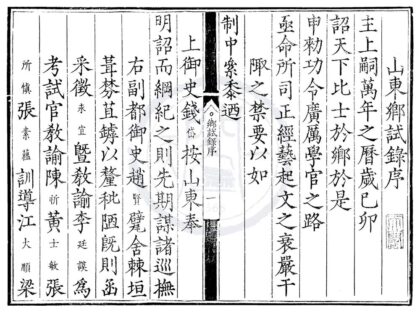 山東鄉試錄序
主上嗣萬年之曆歲己卯
詔天下比士於鄉於是
申勑功令廣厲學官之路
亟命所司正經藝起文之衰嚴干
陬之禁要以如
制中窾奏迺
鄉試錄序
一
上御史錢岱按山東奉
明詔而綱紀之則先期謀諸巡撫
右副都御史趙賢甓舍棘垣
葺棼苴罅以釐秕陋旣則函
采徵來宜暨教諭李廷謨爲
考試官教諭陳祈黃士敏張
所慎張素蘊訓導江大順梁